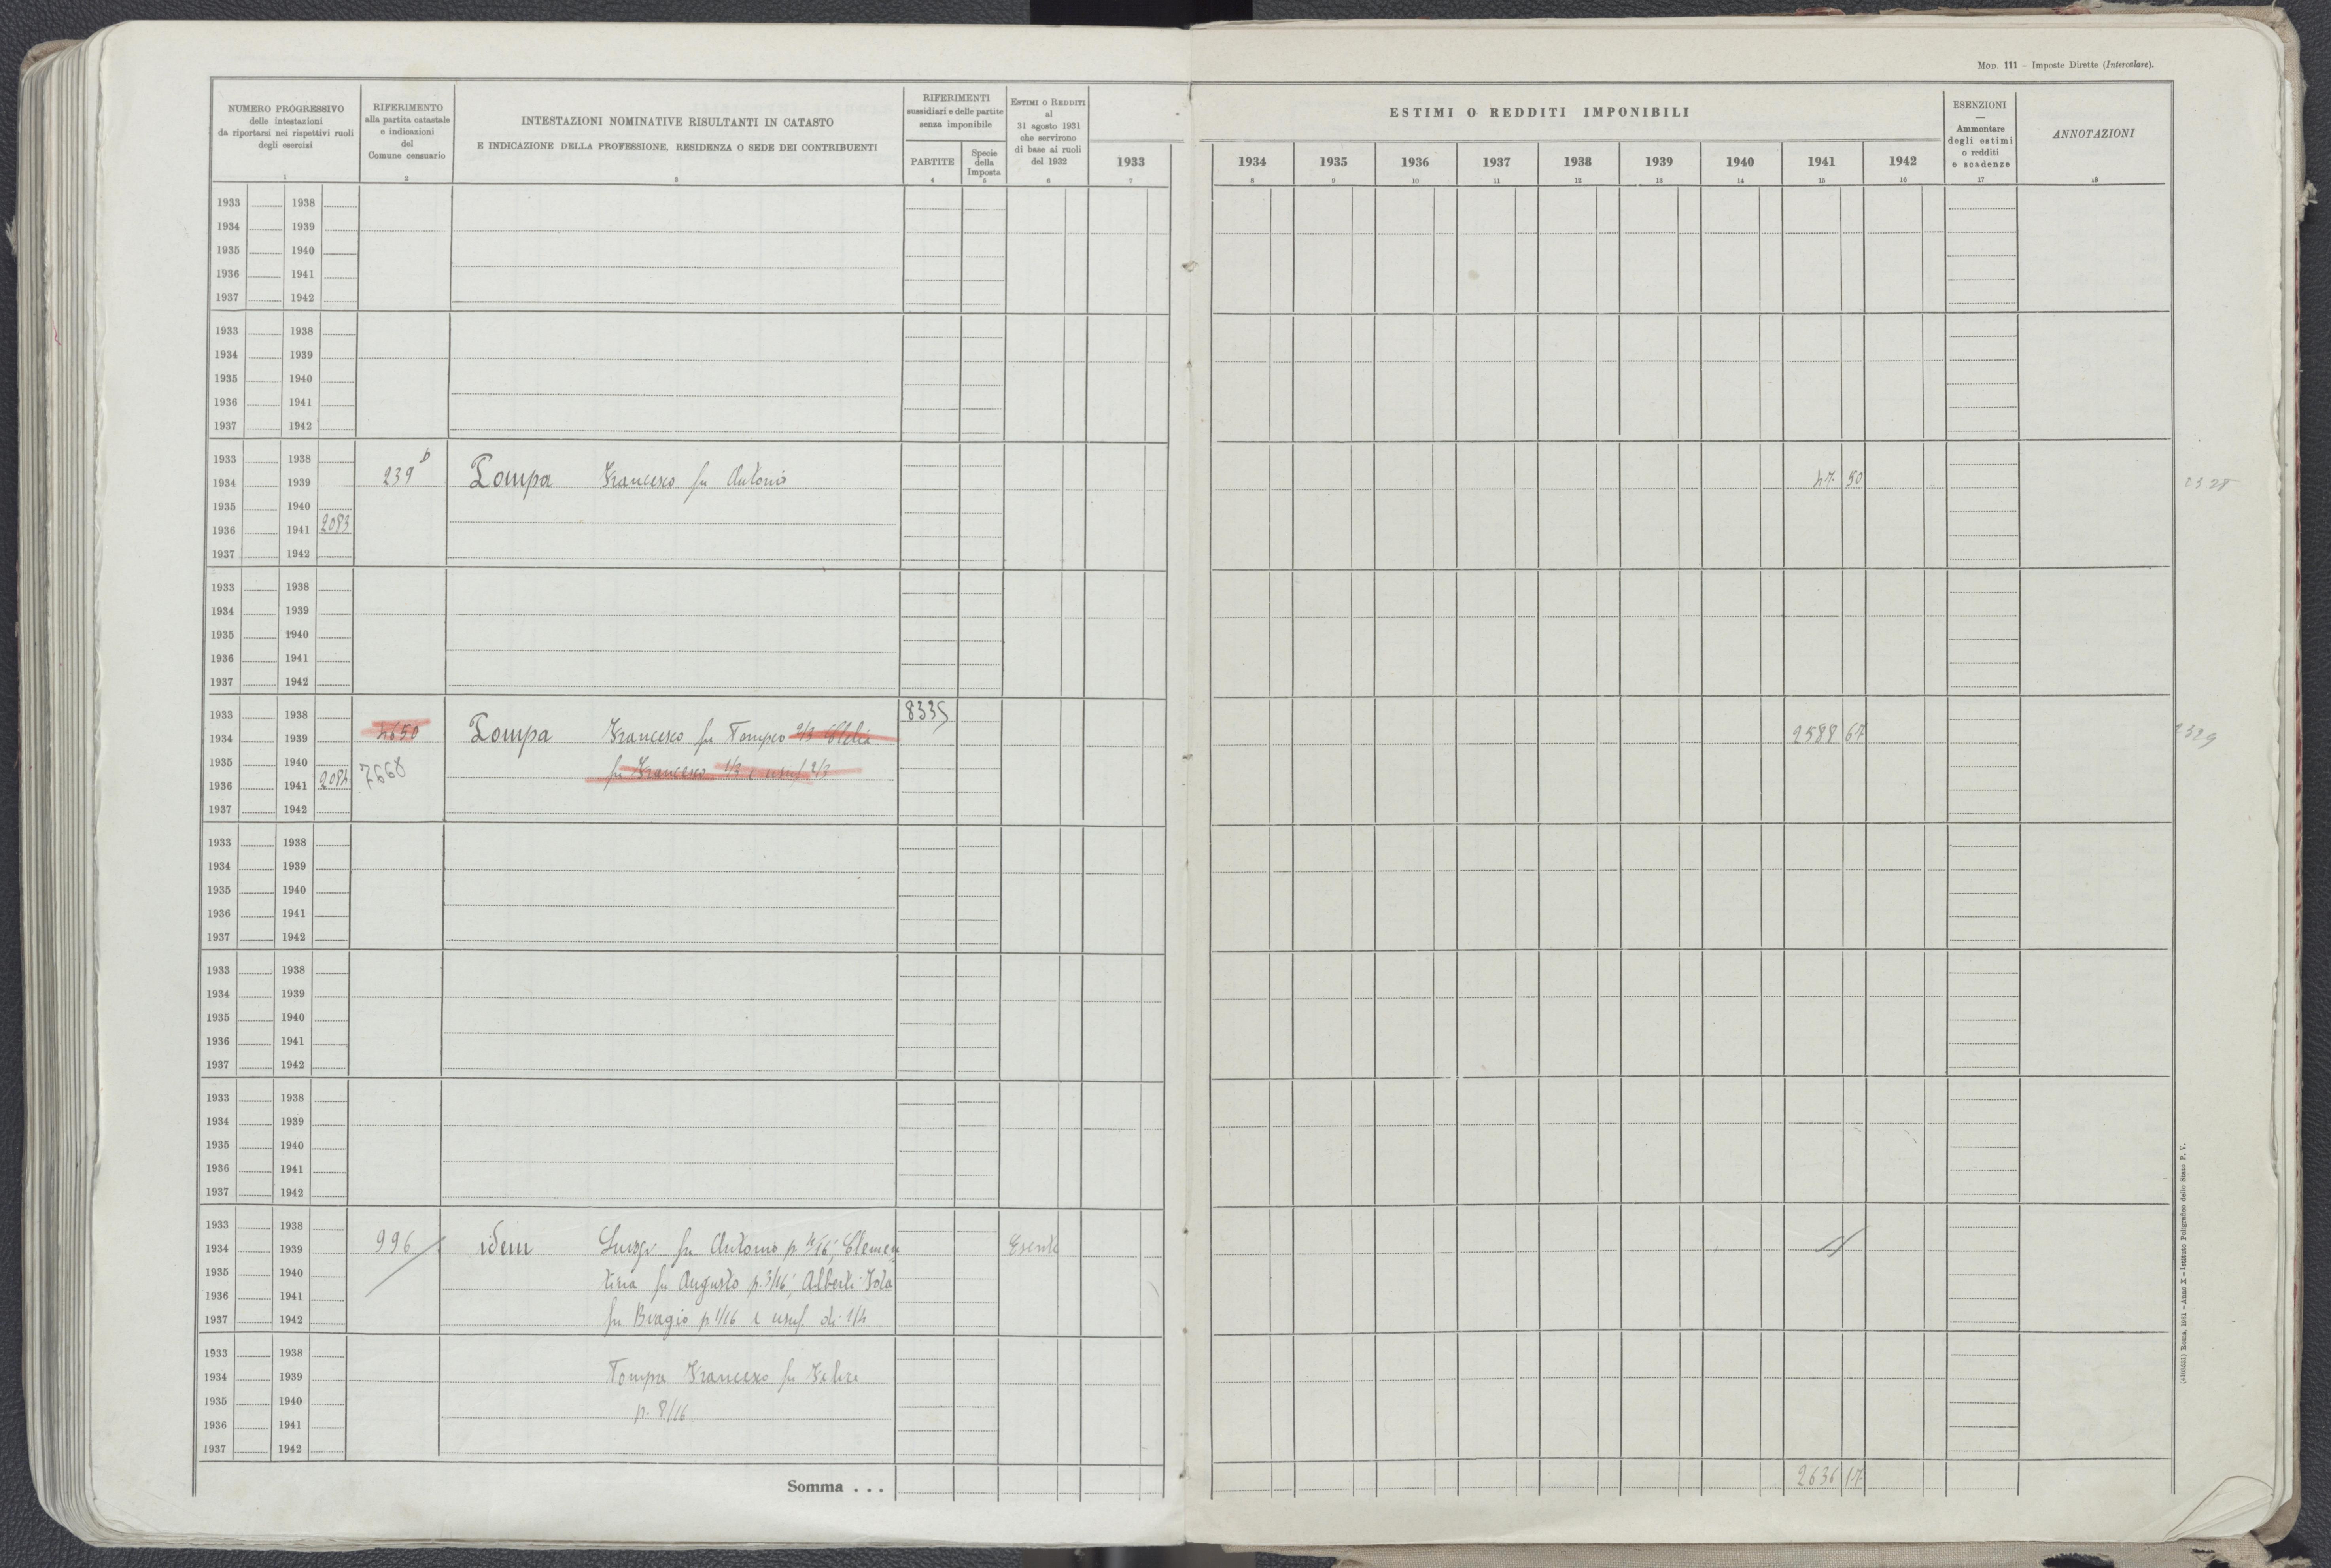 Mod. 111 – Imposte Dirette (Intercalare).
NUMERO PROGRESSIVO
delle intestazioni
da riportarsi nei rispettivi ruoli
degli esercizi
1
RIFERIMENTO
alla partita catastale
e indicazioni
del
Comune censuario
2
INTESTAZIONI NOMINATIVE RISULTANTI IN CATASTO
E INDICAZIONE DELLA PROFESSIONE, RESIDENZA O SEDE DEI CONTRIBUENTI
3
RIFERIMENTI
sussidiari e delle partite
senza imponibile
PARTITE
4
Specie
della
Imposta
5
Estimi o Redditi
al
31 agosto 1931
che servirono
di base ai ruoli
del 1932
6
1933
7
ESTIMI O REDDITI IMPONIBILI
1934 1935 1936 1937 1938 1939 1940 1941 1942
8 9 10 11 12 13 14 15 16
ESENZIONI
—
Ammontare
degli estimi
o redditi
e scadenze
17
ANNOTAZIONI
18
1933 1938
1934 1939
1935 1940
1936 1941
1937 1942
1933 1938
1934 1939
1935 1940
1936 1941
1937 1942
1933 1938
1934 1939 239 Pompa Francesco fu Antonio 47 50 2328
1935 1940
1936 1941 2083
1937 1942
1933 1938
1934 1939
1935 1940
1936 1941
1937 1942
1933 1938 8335
1934 1939 4650 Pompa Francesco fu Pompeo 2/3 Clelia 2588 67 2329
1935 1940 7668 fu Francesco 1/3 e usuf. 2/3
1936 1941 2084
1937 1942
1933 1938
1934 1939
1935 1940
1936 1941
1937 1942
1933 1938
1934 1939
1935 1940
1936 1941
1937 1942
1933 1938
1934 1939
1935 1940
1936 1941
1937 1942
1933 1938
1934 1939 996 idem Luigi fu Antonio p. 4/16; Clemen Esente
1935 1940 tina fu Augusto p. 3/16; Alberti Iola
1936 1941
1937 1942 fu Biagio p 1/16 e usuf. di 1/4
1933 1938
1934 1939 Pompa Francesco fu Felice
1935 1940 p. 8/16
1936 1941
1937 1942
Somma . . . 2636 17
(4103011) Roma, 1931 – Anno X – Istituto Poligrafico dello Stato P. V.